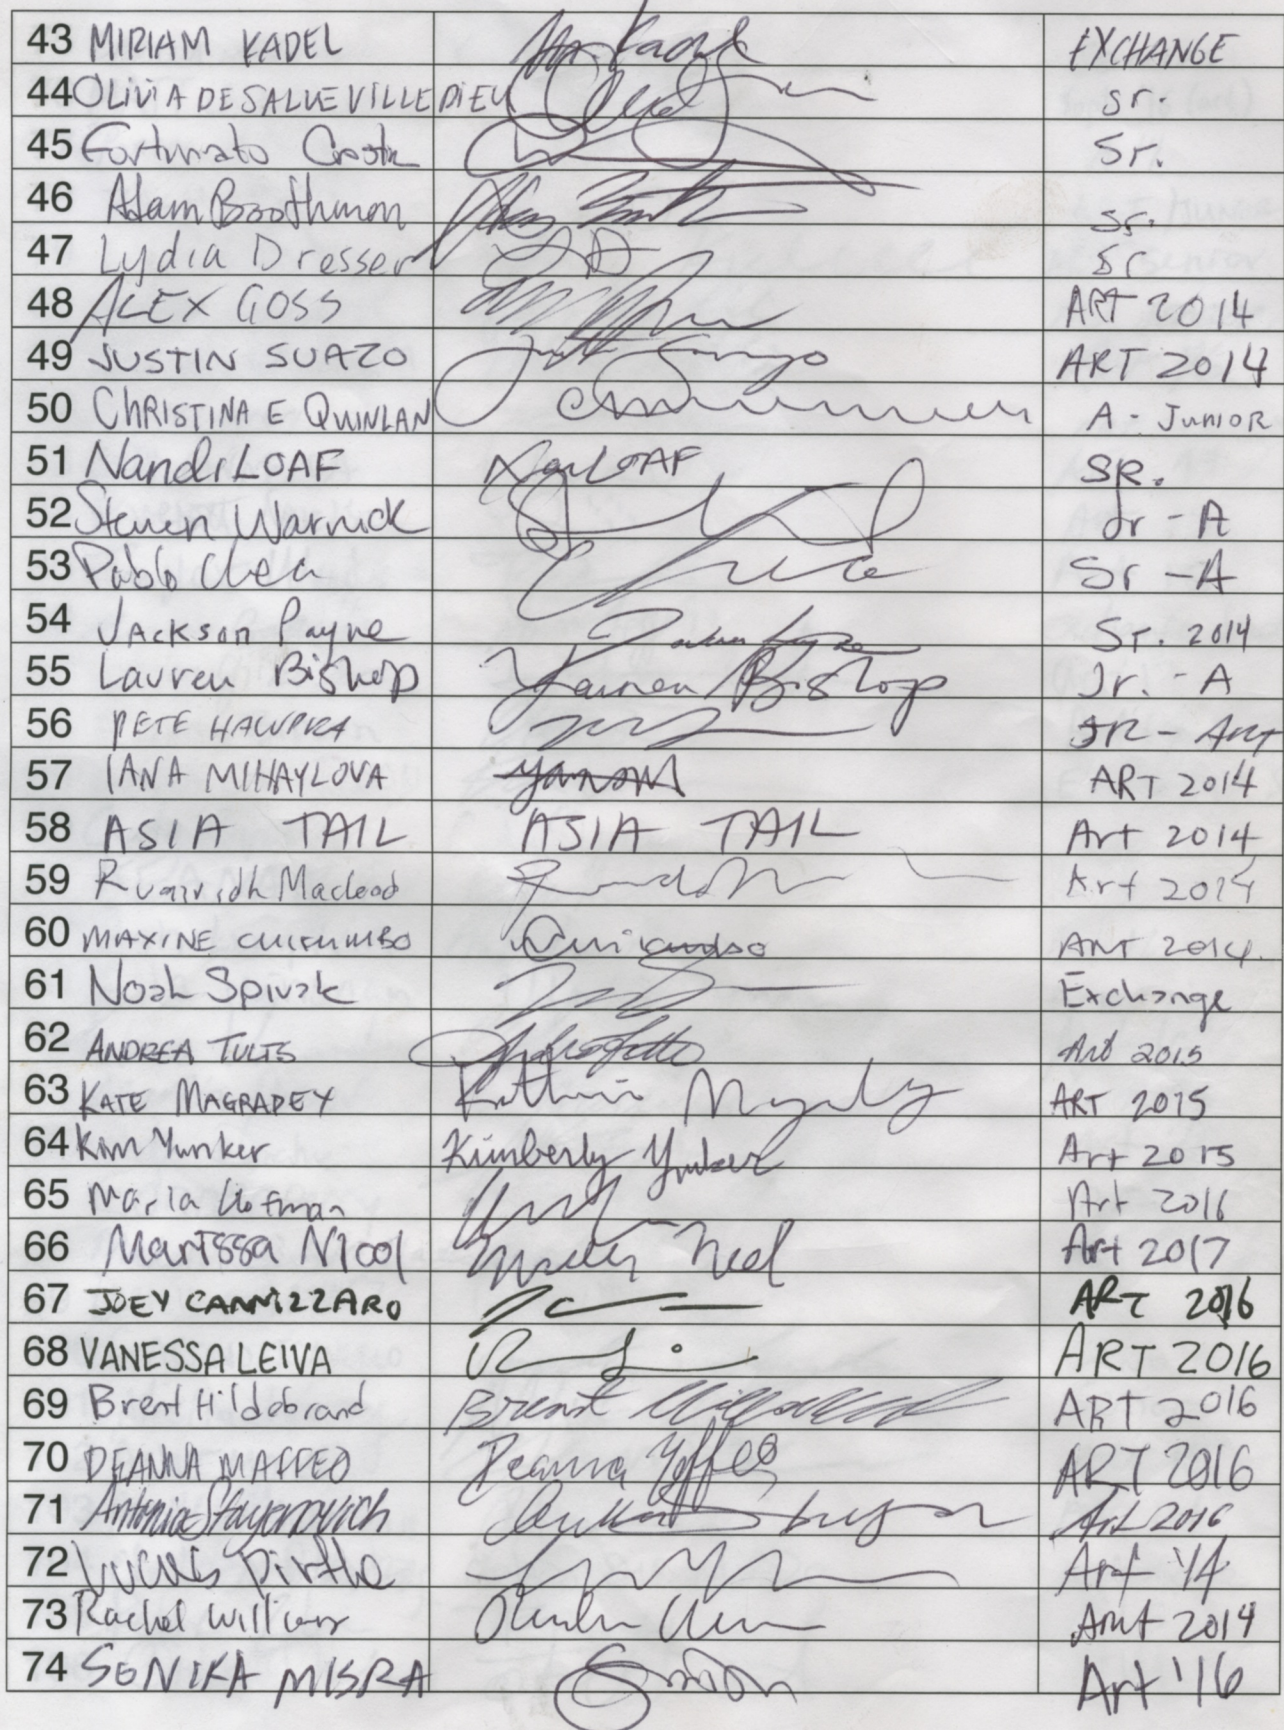 43 MIRIAM KADEL EXCHANGE
44 OLIVIA DE SALVE VILLEDIEU Sr.
45 Fortunato Sr.
46 Adam Boothman Sr.
47 Lydia Dresser LD Sr
48 ALEX GOSS ART 2014
49 JUSTIN SUAZO ART 2014
50 CHRISTINA E QUINLAN A - JUNIOR
51 Nandi LOAF Nan LOAF SR.
52 Steven Warrick Jr - A
53 Pablo Sr - A
54 Jackson Payne Sr. 2014
55 Lauren Bishop Lauren Bishop Jr. - A
56 PETE JR - ART
57 IANA MIHAYLOVA ART 2014
58 ASIA TAIL ASIA TAIL Art 2014
59 Ruairidh Macleod Art 2014
60 MAXINE ART 2014.
61 Noah Spivak Exchange
62 ANDREA Art 2015
63 KATE ART 2015
64 Kim Yunker Kimberly Yunker Art 2015
65 Maria Hofman Art 2016
66 Marissa Nicol Art 2017
67 JOEY CANNIZZARO ART 2016
68 VANESSA LEIVA ART 2016
69 Brent Hildebrand Brent ART 2016
70 DEANNA MAFFEO Deanna Maffeo ART 2016
71 Antonia Stoyanovich Art 2016
72 Art '14
73 Rachel Williams Art 2014
74 SENIKA MISRA Art '16